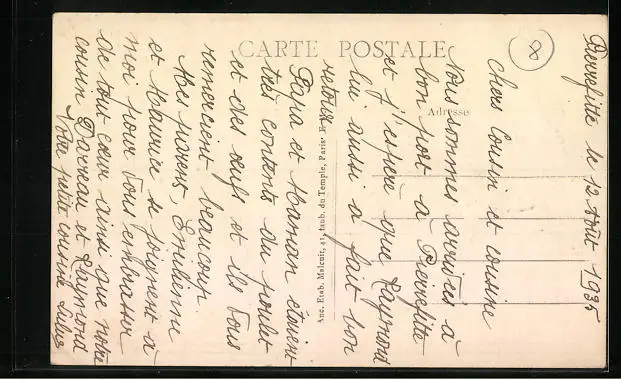 CARTE POSTALE
Adresse
Anc. Etab. Malcuit, 41, faub. du Temple, Paris
8
Pierrefitte le 12 Août 1935
Chers Cousin et Cousine
Nous sommes arrivés à
bon port à Pierrefitte
et j'espère que Raymond
lui aussi a fait bon
retour
Papa et Maman étaient
très contents du poulet
et des œufs et ils vous
remercient beaucoup.
Mes parents, Emilienne
et Maurice se joignent à
moi pour vous embrasser
de tout cœur ainsi que notre
cousin et Raymond
Votre petite cousine